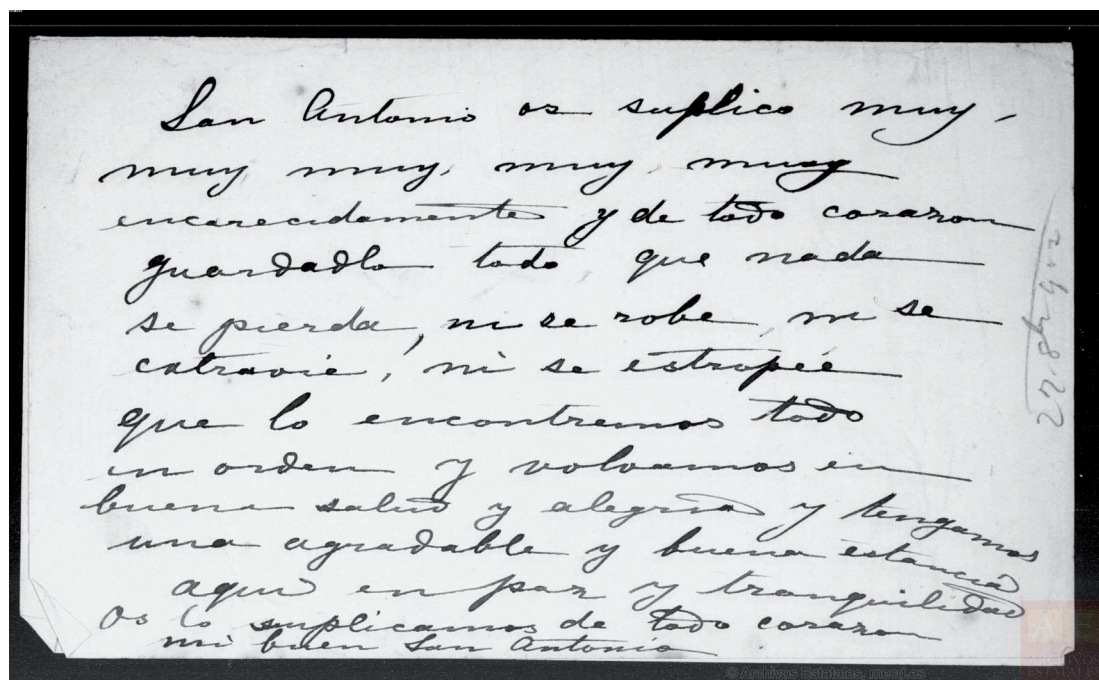 San Antonio os suplico muy,
muy muy, muy, muy
encarecidamente y de todo corazon
guardadlo todo que nada
se pierda, ni se robe, ni se
extravie, ni se estropée
que lo encontremos todo
en orden y volvamos en
buena salud y alegria y tengamos
una agradable y buena estancia
aqui en paz y tranquilidad
Os lo suplicamos de todo corazon
mi buen San Antonio
© Archivos Estatales, mecd.es